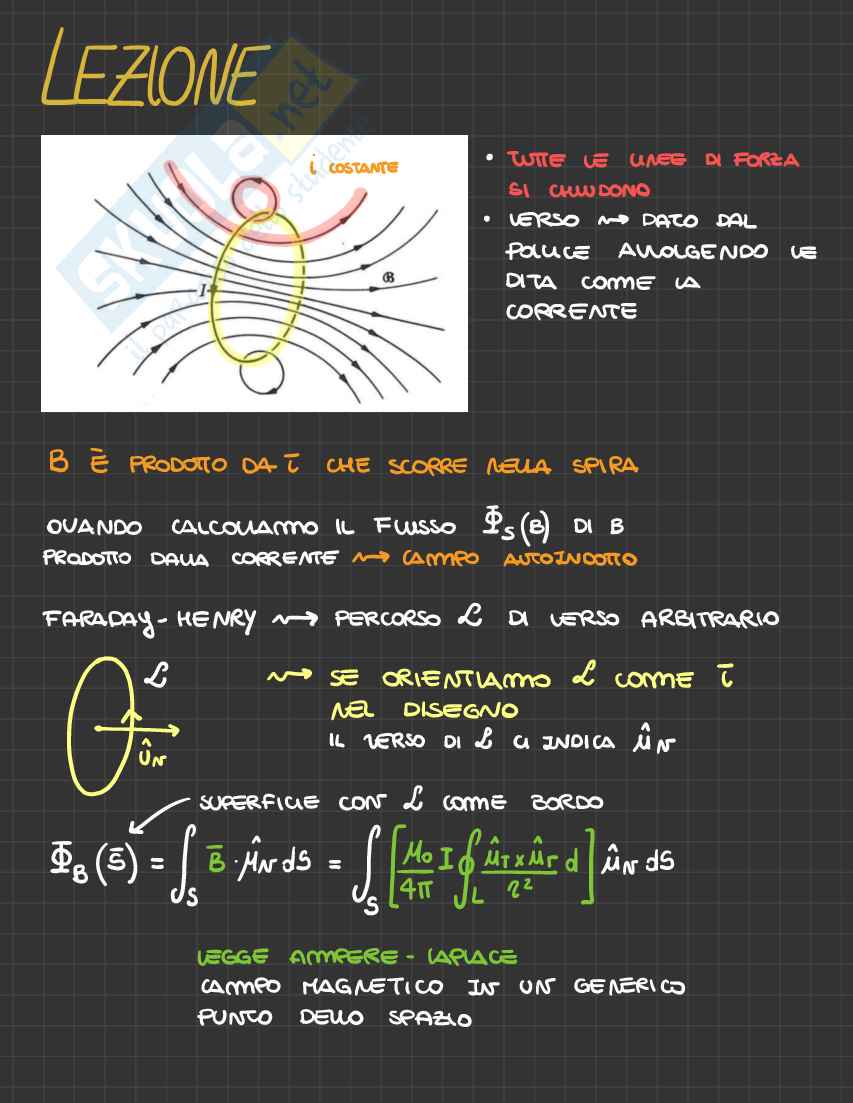 LEZIONE
i COSTANTE
I
B
• TUTTE LE LINEE DI FORZA
SI CHIUDONO
• VERSO ⇝ DATO DAL
POLLICE AVVOLGENDO LE
DITA COME LA
CORRENTE
B È PRODOTTO DA ī CHE SCORRE NELLA SPIRA
QUANDO CALCOLIAMO IL FLUSSO Φ_S(B) DI B
PRODOTTO DALLA CORRENTE ⇝ CAMPO AUTOINDOTTO
FARADAY - HENRY ⇝ PERCORSO ℒ DI VERSO ARBITRARIO
ℒ
⇝ SE ORIENTIAMO ℒ COME ī
NEL DISEGNO
û_N
IL VERSO DI ℒ CI INDICA μ̂_N
SUPERFICIE CON ℒ COME BORDO
Φ_B (S̄) = ∫_S B̄ · μ̂_N dS = ∫_S [μ₀/4π I ∮_L (μ̂_T × μ̂_r)/r² d] μ̂_N dS
LEGGE AMPERE - LAPLACE
CAMPO MAGNETICO IN UN GENERICO
PUNTO DELLO SPAZIO
SKUOLA.net